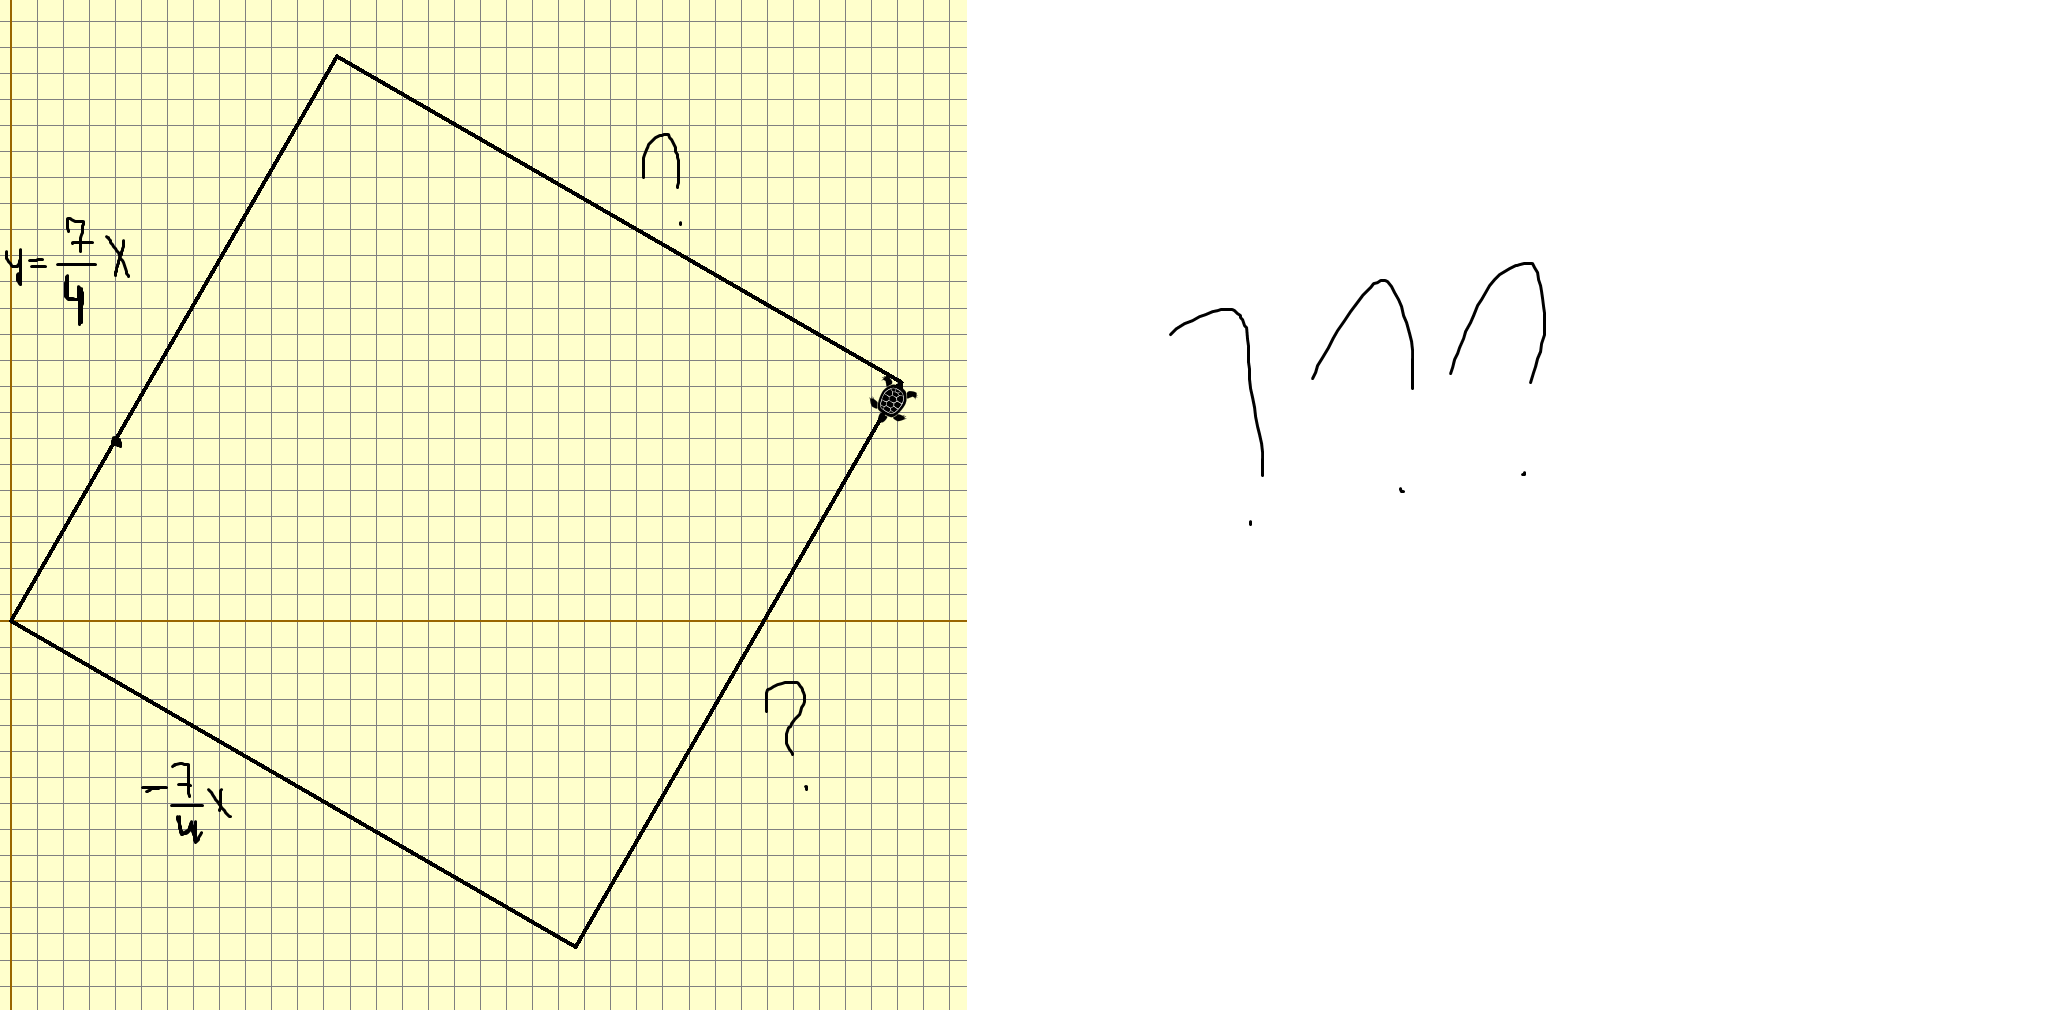 ?
y = 7/4 x
? ? ?
?
- 7/4 x